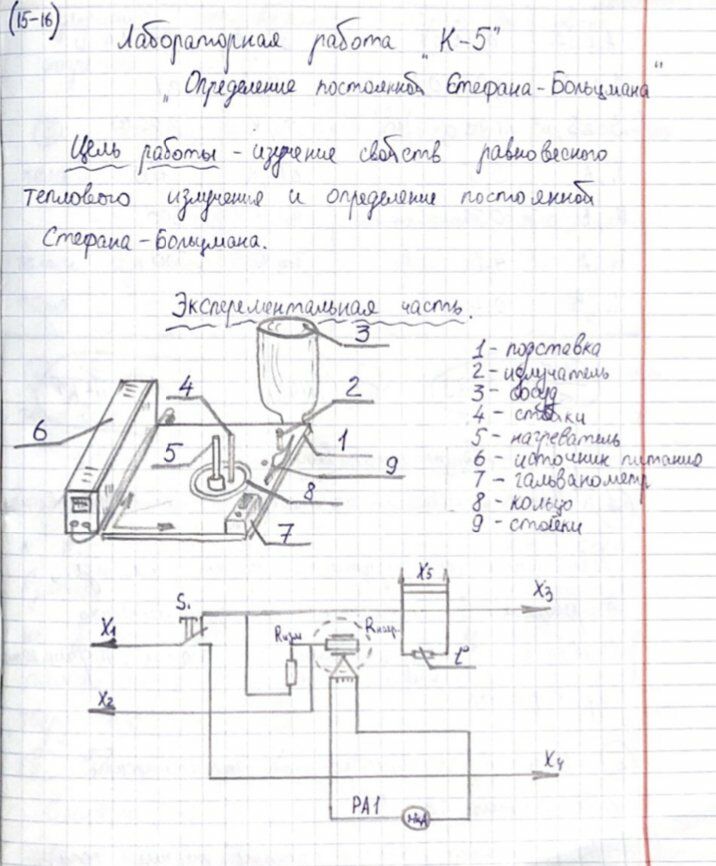 (15-16)
Лабораторная работа "К-5"
"Определение постоянной Стефана-Больцмана"
Цель работы - изучение свойств равновесного
теплового излучения и определение постоянной
Стефана-Больцмана.
Эксперементальная часть.
1 - подставка
2 - излучатель
3 - сосуд
4 - стойки
5 - нагреватель
6 - источник питания
7 - гальванометр
8 - кольцо
9 - стойки
3
4
2
6
5
1
9
8
7
X5
X3
S1
X1
Rизм
Rнагр.
X2
X4
PA1
мкА